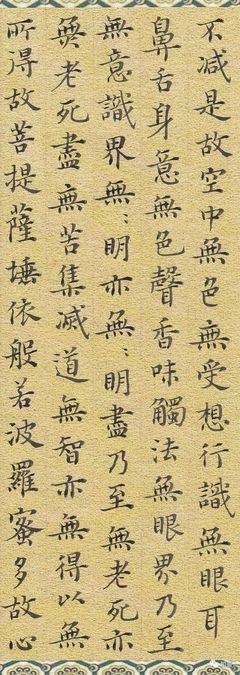 不减是故空中無色無受想行識無眼耳
鼻舌身意無色聲香味觸法無眼界乃至
無意識界無〻明亦無〻明盡乃至無老死亦
無老死盡無苦集減道無智亦無得以無
所得故菩提薩埵依般若波羅蜜多故心